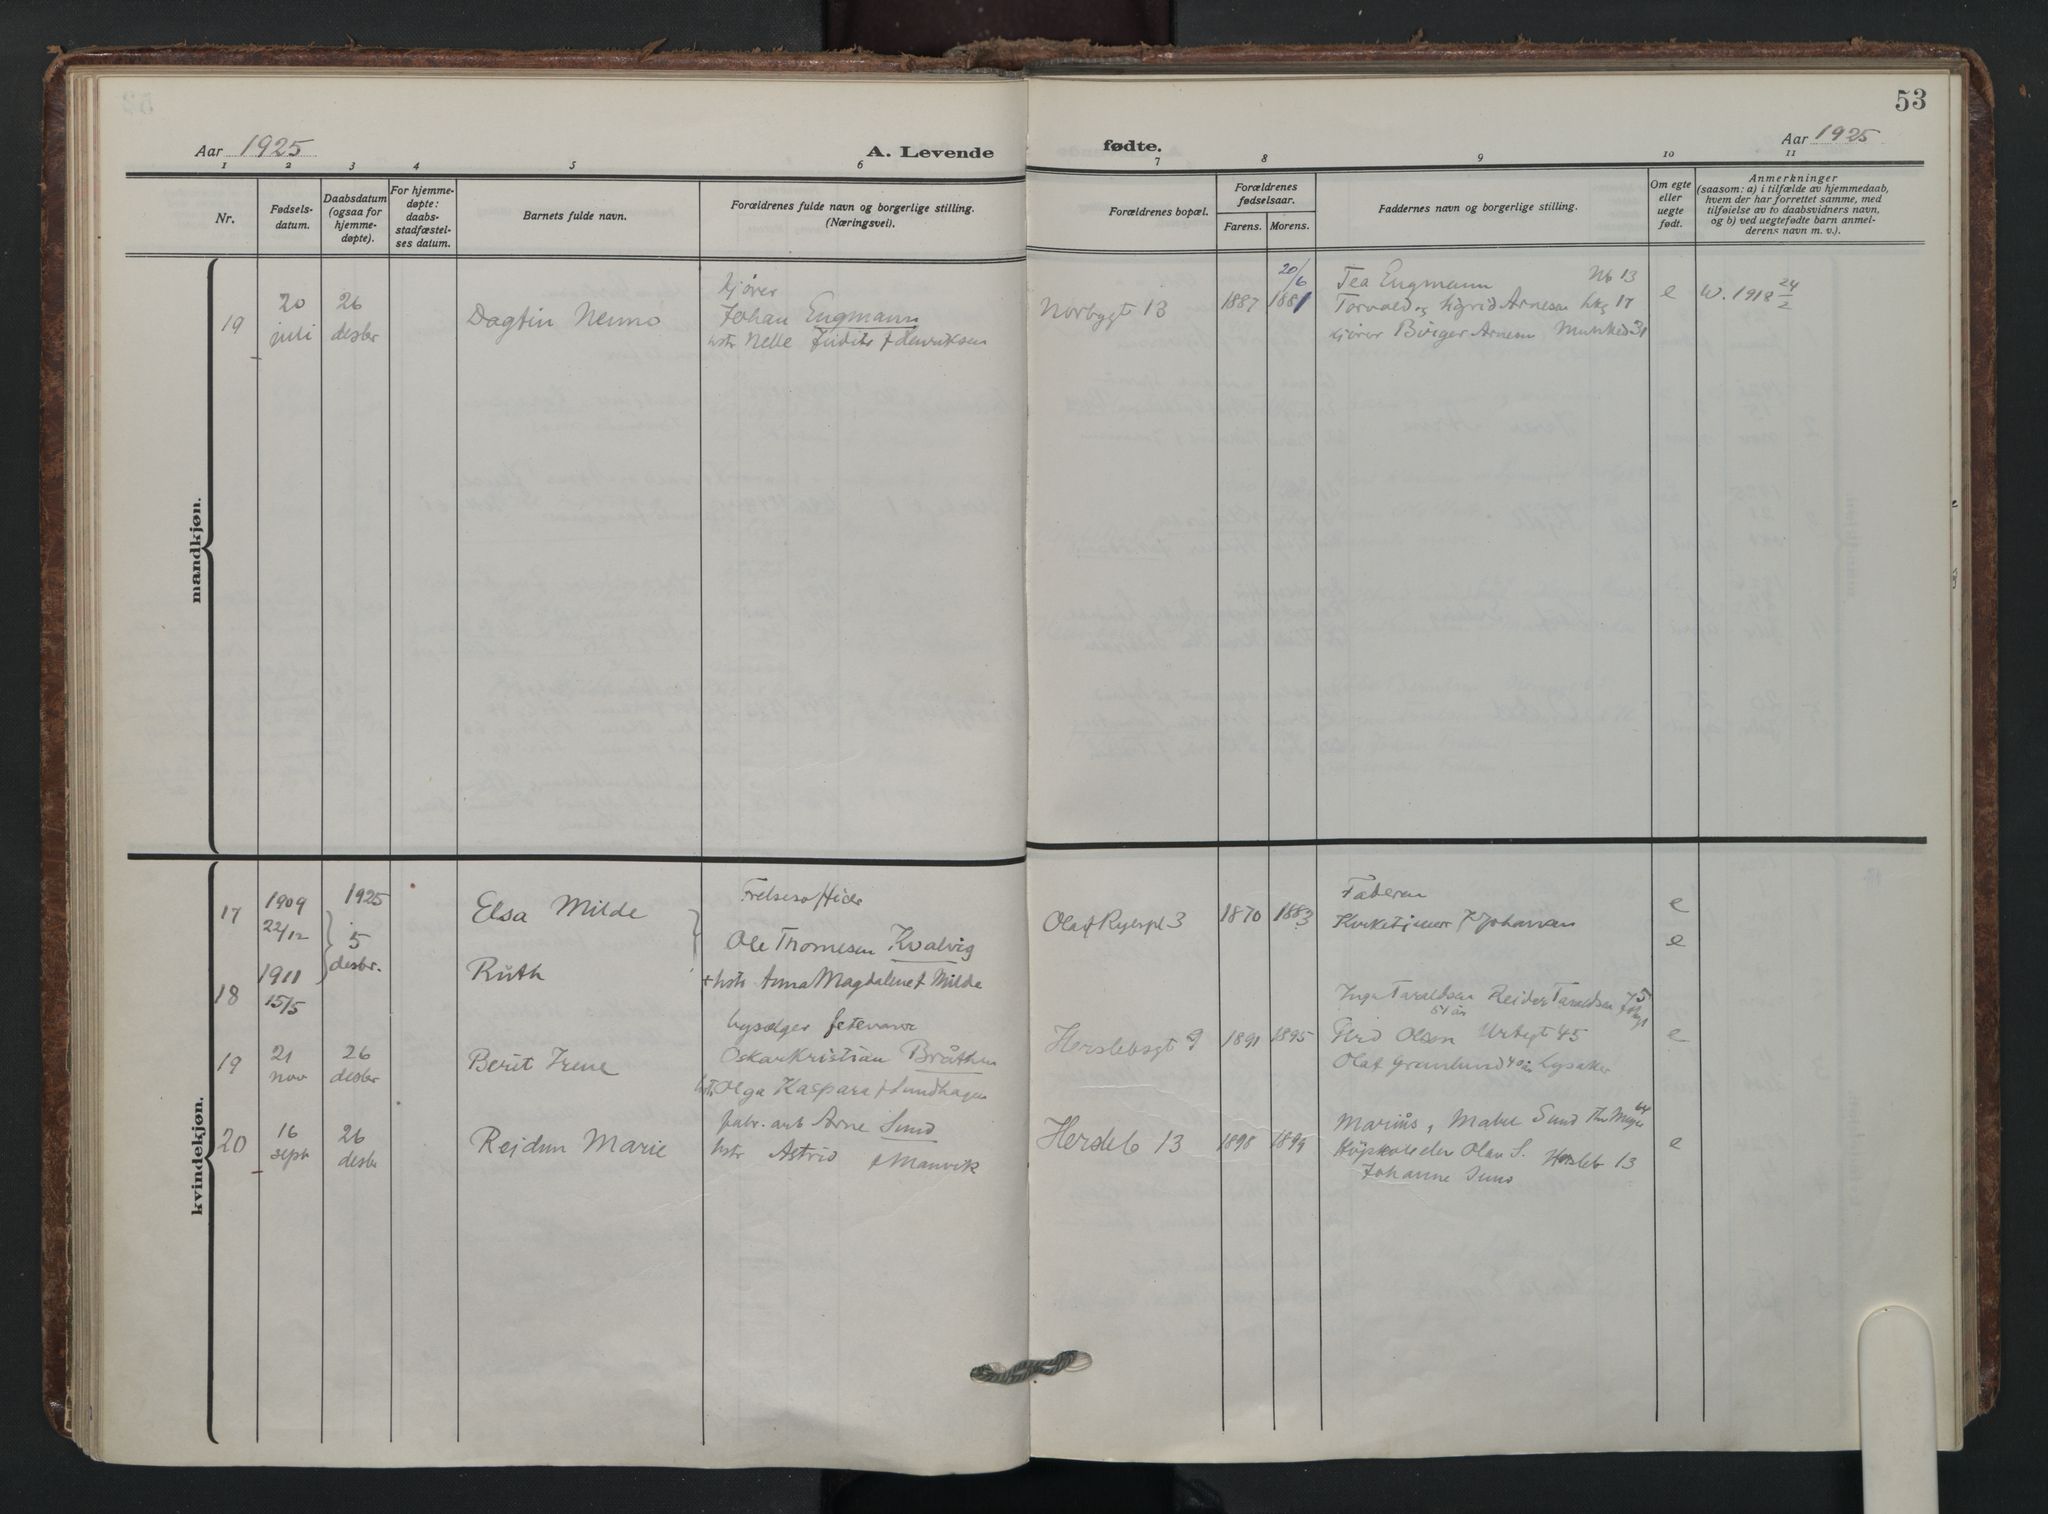 53
Aar 1925
A. Levende
fødte.
Aar 1925
1 2 3 4 5 6 7 8 9 10 11
Nr.
Fødsels-
datum.
Daabsdatum
(ogsaa for
hjemme-
døpte).
For hjemme-
døpte:
daabs-
stadfæstel-
ses datum.
Barnets fulde navn.
Forældrenes fulde navn og borgerlige stilling.
(Næringsvei).
Forældrenes bopæl.
Forældrenes
fødselsaar.
Farens. Morens.
Faddernes navn og borgerlige stilling.
Om egte
eller
uegte
født.
Anmerkninger
(saasom: a) i tilfælde av hjemmedaab,
hvem der har forrettet samme, med
tilføielse av to daabsvidners navn,
og b) ved uegtefødte barn anmel-
derens navn m. v.).
mandkjøn.
19
20
juli
26
desbr
Dagfin Nenno
kjører
Johan Engmann
hstr Nelle Judith f Henriksen
Norbygt 13
1887
20/6
1881
Tea Engmann Nb 13
Torvald og Sigrid Arnesen 17
kjører Birger Arnesen
e
W. 1918 24/2
kvindekjøn.
17
1909
22/12
1925
5
desbr.
Elsa Milde
Frelsesoffider
Ole Thomesen Kvalvig
+ hstr Anna Magdalene f Milde
Olaf Ryespl 3
1870
1883
Faderen
Kirketjener J Johansen
e
e
18
1911
15/5
Ruth
19
21
nov
26
desbr
Berit Irene
fetevare
Oskar Kristian Bråthen
hstr Olga Kaspara f Lundhagen
Herslebsgt 9
1891
1895
Inga Taraldsen Reidar Taraldsen
51 år
Gerd Olsen Urtegt 45
Olaf Grønlund 40 år Lysaker
e
20
16
sept
26
desbr
Reidun Marie
fabr. arb Arne Sund
hstr Astrid f Manvik
Hersleb 13
1898
1899
Marius, Mabel Sund Th. Meyer 64
Olav S. Hersleb 13
Johanne Sund
e